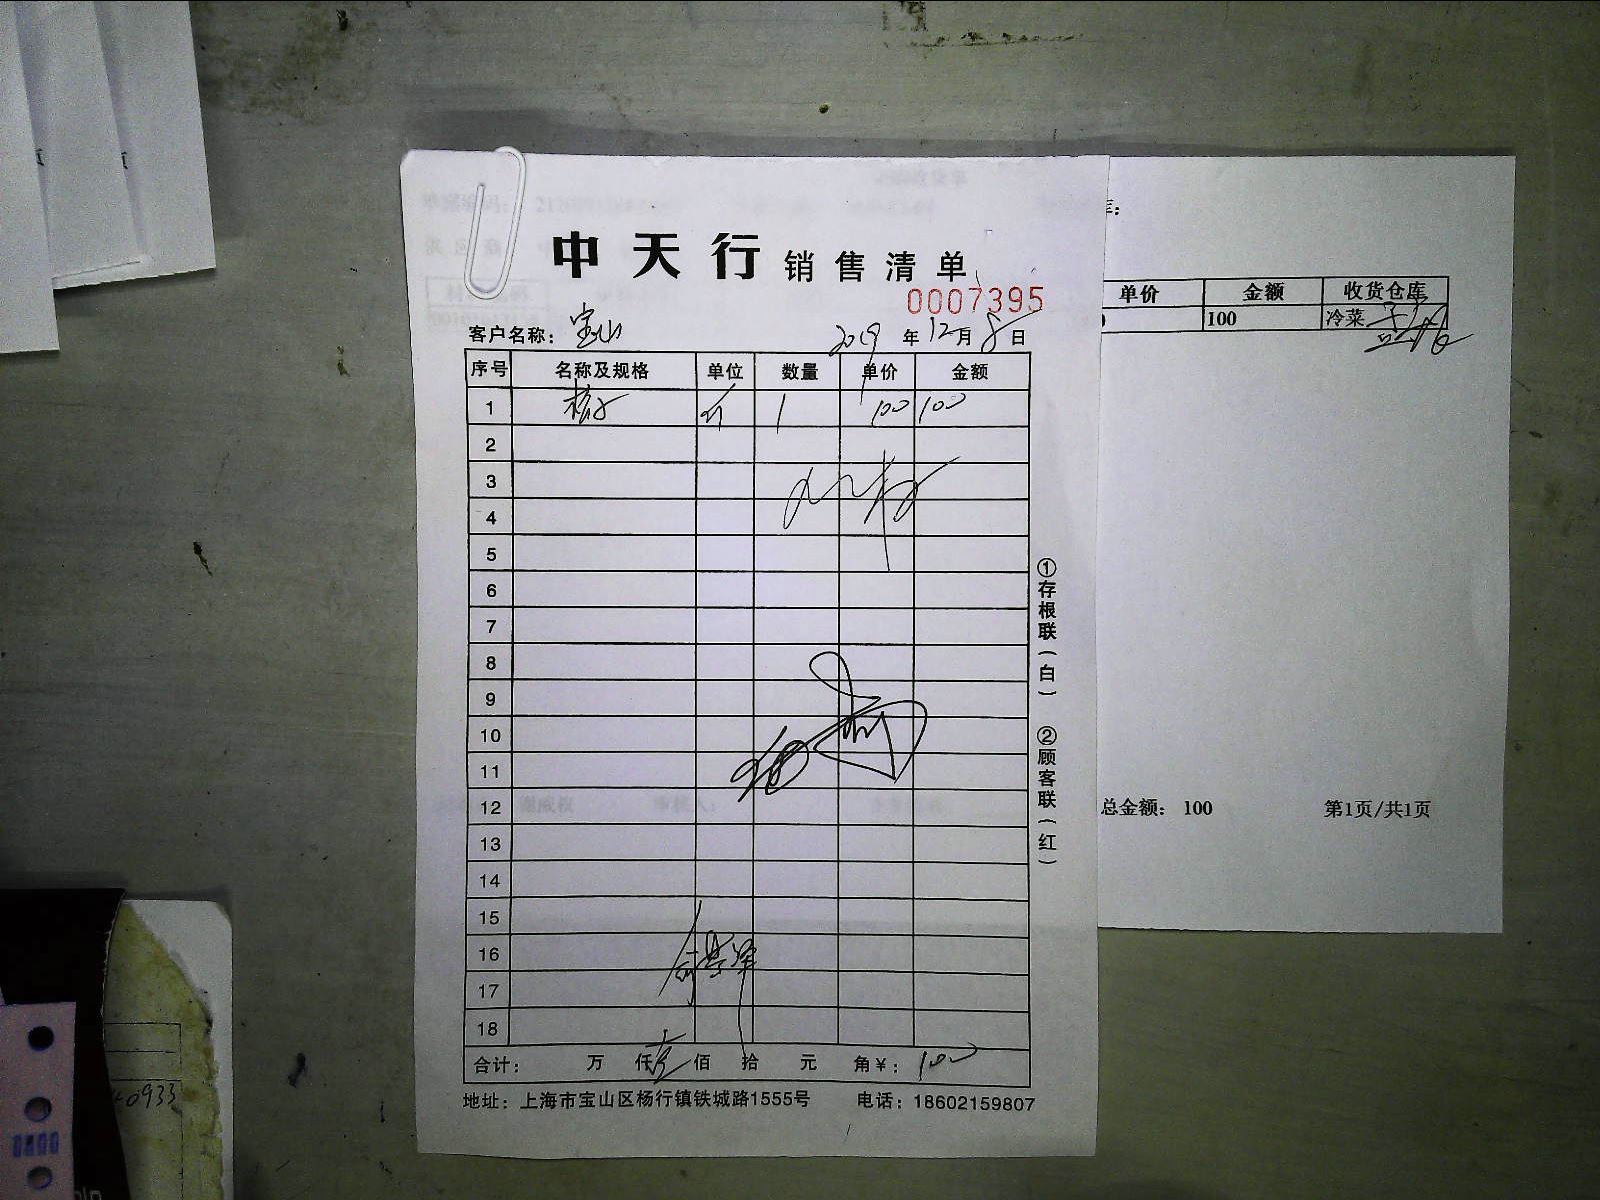 中天行 销售清单
0007395
客户名称：宝山 2019年12月8日
序号 名称及规格 单位 数量 单价 金额
1 1 100 100
2
3
4
5
6
7
8
9
10
11
12
13
14
15
16
17
18
合计： 万 仟 壹佰 拾 元 角 ¥：100
地址：上海市宝山区杨行镇铁城路1555号 电话：18602159807
①存根联（白） ②顾客联（红）
单价 金额 收货仓库
100 冷菜
总金额： 100 第1页/共1页
0933